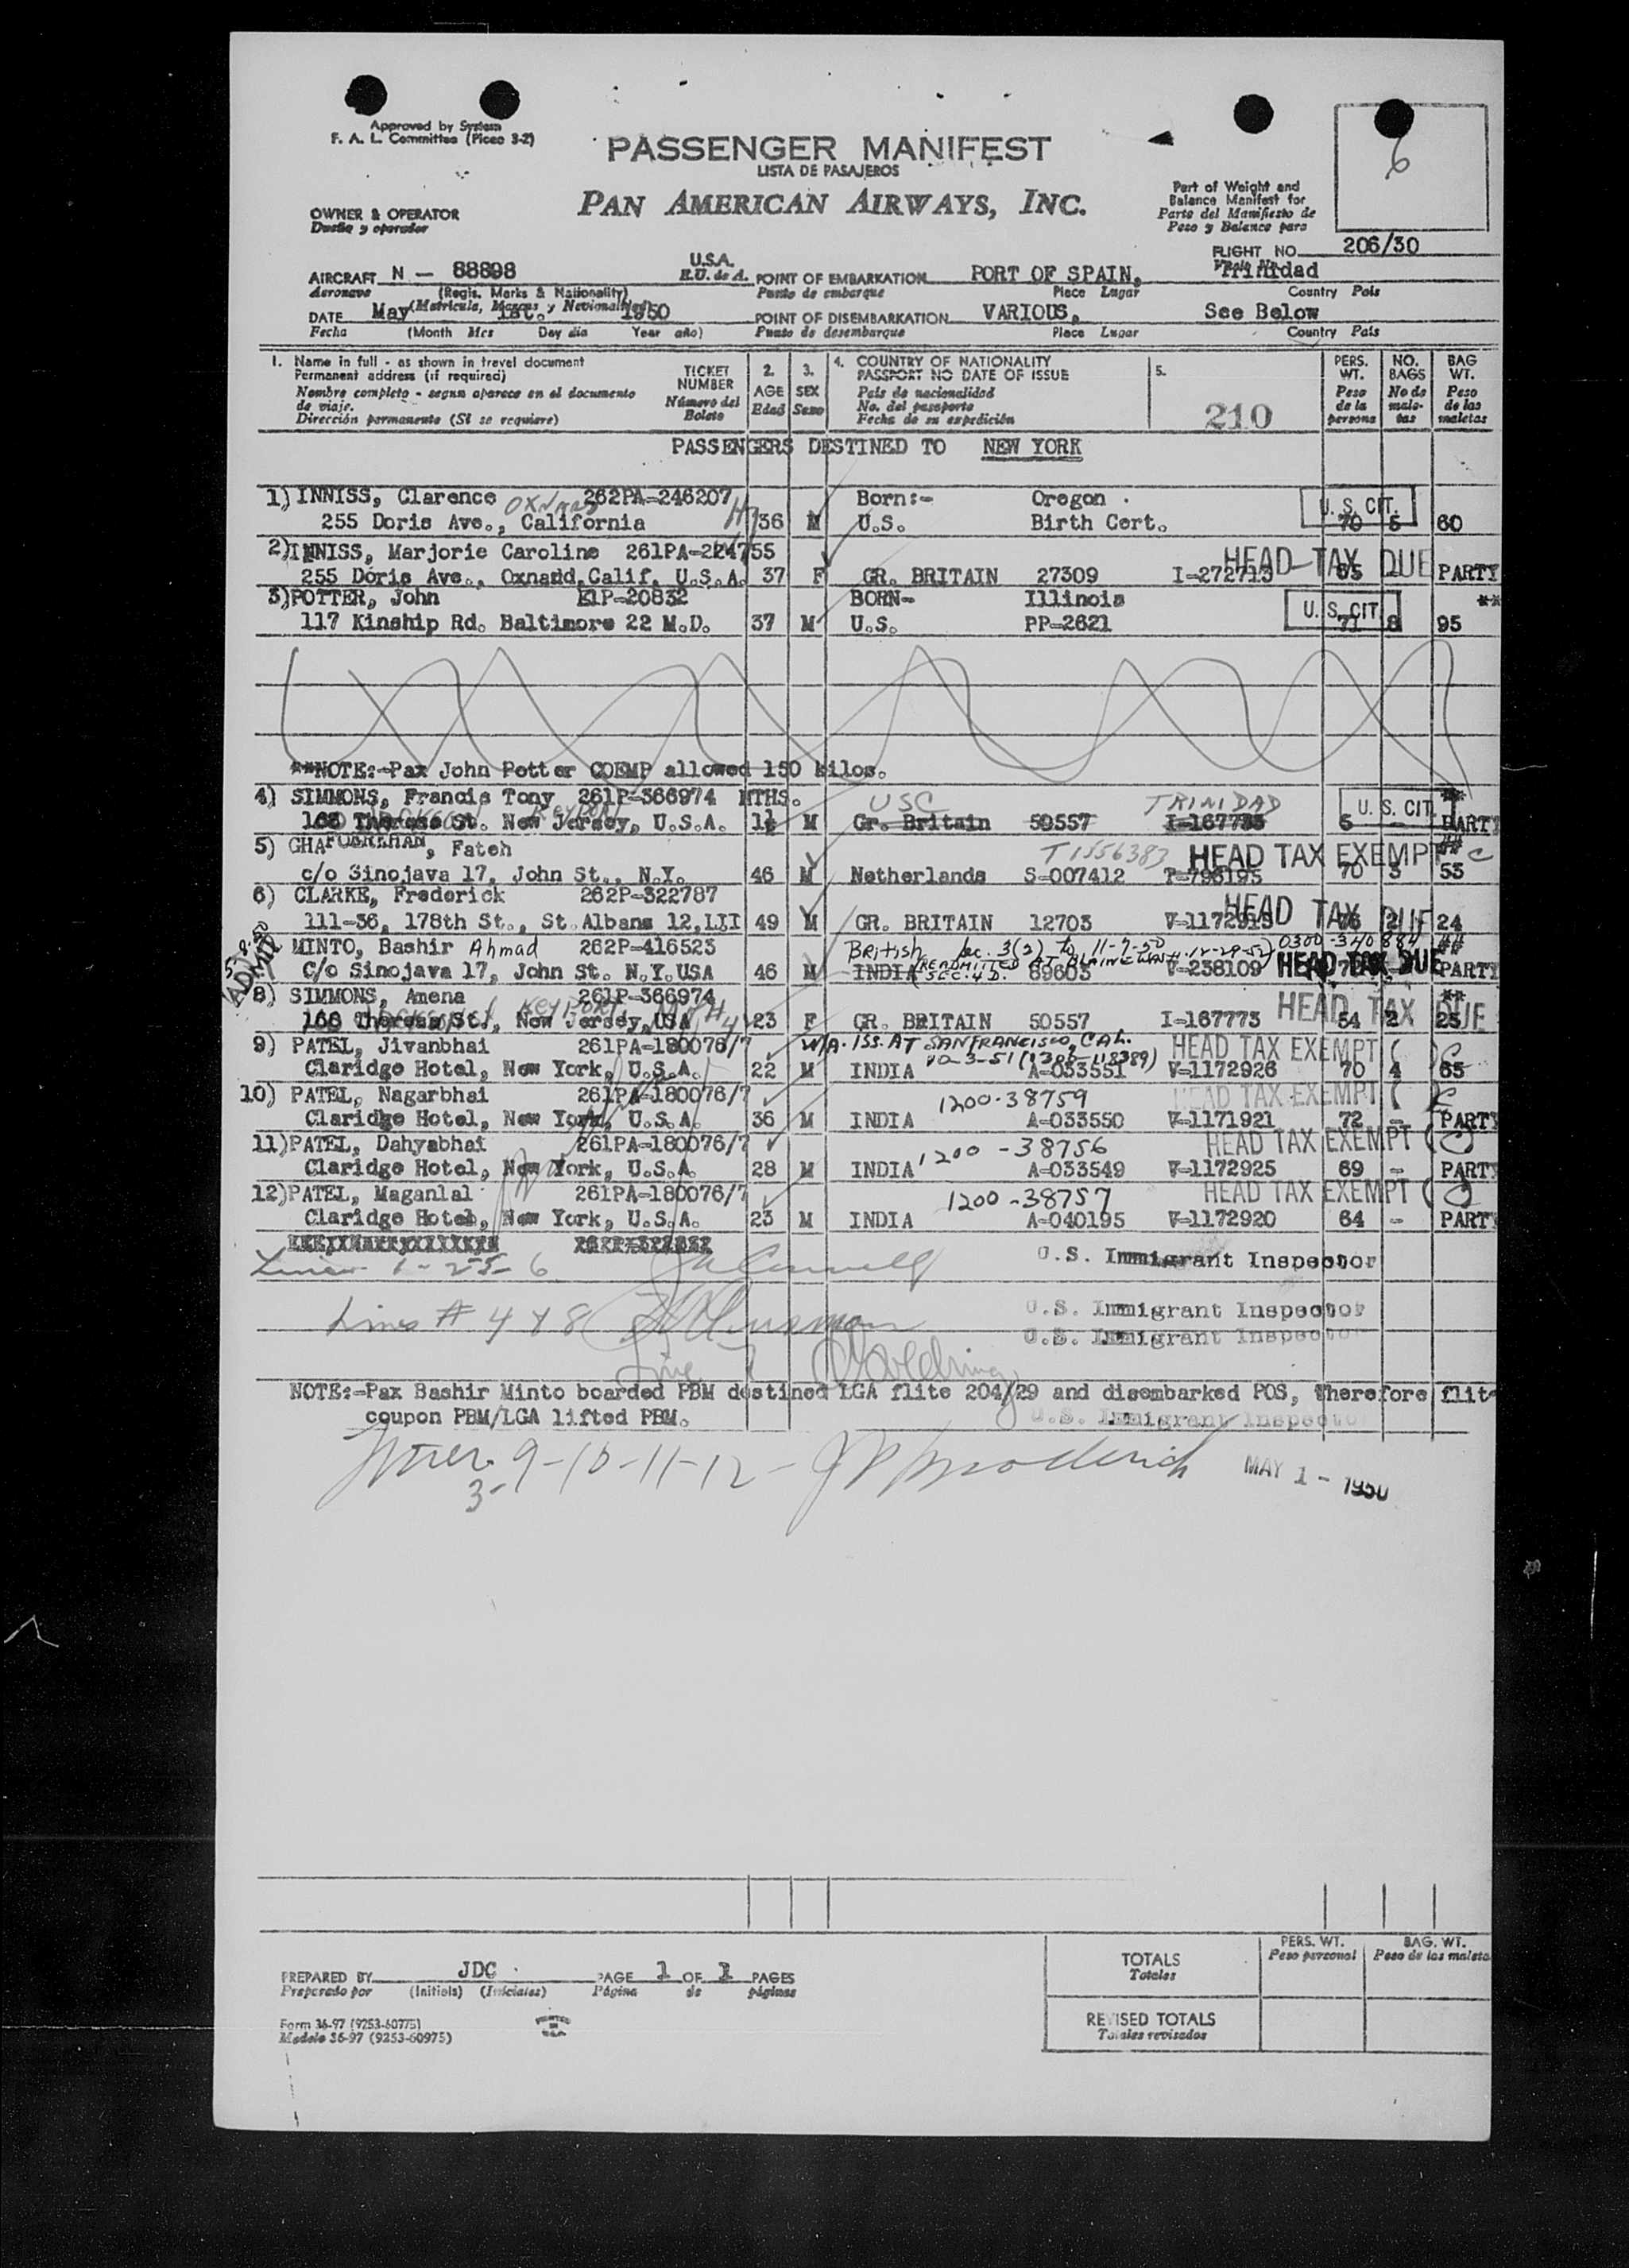 Approved by System
F. A. L. Committee (Picao 3-2)
6
PASSENGER MANIFEST
LISTA DE PASAJEROS
PAN AMERICAN AIRWAYS, INC.
Part of Weight and
Balance Manifest for
Parte del Manifiesto de
Peso y Balance para
OWNER & OPERATOR
Dueño y operador
FLIGHT NO. 206/30
AIRCRAFT N - 88898 U.S.A. E.U. de A. POINT OF EMBARKATION PORT OF SPAIN, Trinidad
Aeronave (Regis. Marks & Nationality) Punto de embarque Place Lugar Country País
(Matricula, Marcas y Nacionalidad)
DATE May 1st. 1950 POINT OF DISEMBARKATION VARIOUS. See Below
Fecha (Month Mes Day dia Year año) Punto de desembarque Place Lugar Country País
1. Name in full - as shown in travel document
Permanent address (if required)
Nombre completo - segun aparece en el documento
de viaje.
Dirección permanente (Si se requiere)
TICKET NUMBER
Número del Boleto
2. AGE Edad
3. SEX Sexo
4. COUNTRY OF NATIONALITY
PASSPORT NO DATE OF ISSUE
País de nacionalidad
No. del pasaporte
Fecha de su expedición
5.
210
PERS. WT.
Peso de la persona
NO. BAGS
No de maletas
BAG WT.
Peso de las maletas
PASSENGERS DESTINED TO NEW YORK
1) INNISS, Clarence 262PA-246207 Born:- Oregon U.S. CIT.
255 Doris Ave., Oxnard California 36 M U.S. Birth Cert. 70 5 60
2) INNISS, Marjorie Caroline 261PA-224755 HEAD TAX DUE
255 Doris Ave., Oxnadd, Calif. U.S.A. 37 F GR. BRITAIN 27309 I-272713 65 - PARTY
3) POTTER, John E1P-20832 BORN- Illinois U.S. CIT. **
117 Kinship Rd. Baltimore 22 M.D. 37 M U.S. PP-2621 71 8 95
**NOTE:-Pax John Potter COEMP allowed 150 kilos.
4) SIMMONS, Francis Tony 261P-366974 MTHS. USC TRINIDAD U. S. CIT. **
Keyport
166 Theresa St. New Jersey, U.S.A. 11 M Gr. Britain 50557 5 - PARTY
5) GHAFOERKHAN, Fateh T1556383 HEAD TAX EXEMPT C ##
c/o Sinojava 17, John St., N.Y. 46 M Netherlands S-007412 P-796195 70 3 53
6) CLARKE, Frederick 262P-322787 HEAD TAX DUE
111-36, 178th St., St. Albans 12, LII 49 M GR. BRITAIN 12703 V-1172915 76 2 24
ADMIT
MINTO, Bashir Ahmad 262P-416523 British Sec. 3(2) to 11-7-50 0300-340884 ##
(READMITTED AT BLAINE WASH. 12-29-52) SEC. 4 D.
C/o Sinojava 17, John St. N.Y. USA 46 M INDIA 89603 V-238109 HEAD TAX DUE PARTY
8) SIMMONS, Amena 261P-366974 HEAD TAX DUE **
Keyport
166 Theresa St., New Jersey, USA 23 F GR. BRITAIN 50557 I-167773 54 2 25
9) PATEL, Jivanbhai 261PA-180076/7 W/A. ISS. AT SAN FRANCISCO, CAL. HEAD TAX EXEMPT ( C )
10-3-51 (1300-118389)
Claridge Hotel, New York, U.S.A. 22 M INDIA A-033551 V-1172926 70 4 65
10) PATEL, Nagarbhai 261PA-180076/7 1200-38759 HEAD TAX EXEMPT ( C
Claridge Hotel, New York, U.S.A. 36 M INDIA A-033550 V-1171921 72 - PARTY
11) PATEL, Dahyabhai 261PA-180076/7 1200-38756 HEAD TAX EXEMPT (C)
Claridge Hotel, New York, U.S.A. 28 M INDIA A-033549 V-1172925 69 - PARTY
12) PATEL, Maganlal 261PA-180076/7 1200-38757 HEAD TAX EXEMPT (C)
Claridge Hotel, New York, U.S.A. 23 M INDIA A-040195 V-1172920 64 - PARTY
Lines 1-25-6 U.S. Immigrant Inspector
Lines # 4 & 8 U.S. Immigrant Inspector
U.S. Immigrant Inspector
Line 7
NOTE:-Pax Bashir Minto boarded PBM destined LGA flite 204/29 and disembarked POS, therefore flit-
coupon PBM/LGA lifted PBM. U.S. Immigrant Inspector
Lines 9-10-11-12- J P Broderick MAY 1 - 1950
3-
TOTALS
Totales
PERS. WT.
Peso personal
BAG. WT.
Peso de las maleta
PREPARED BY JDC PAGE 1 OF 1 PAGES
Preparado por (Initials) (Iniciales) Página de páginas
REVISED TOTALS
Totales revisados
Form 36-97 (9253-60775)
Modelo 36-97 (9253-60975)
PRINTED IN U.S.A.